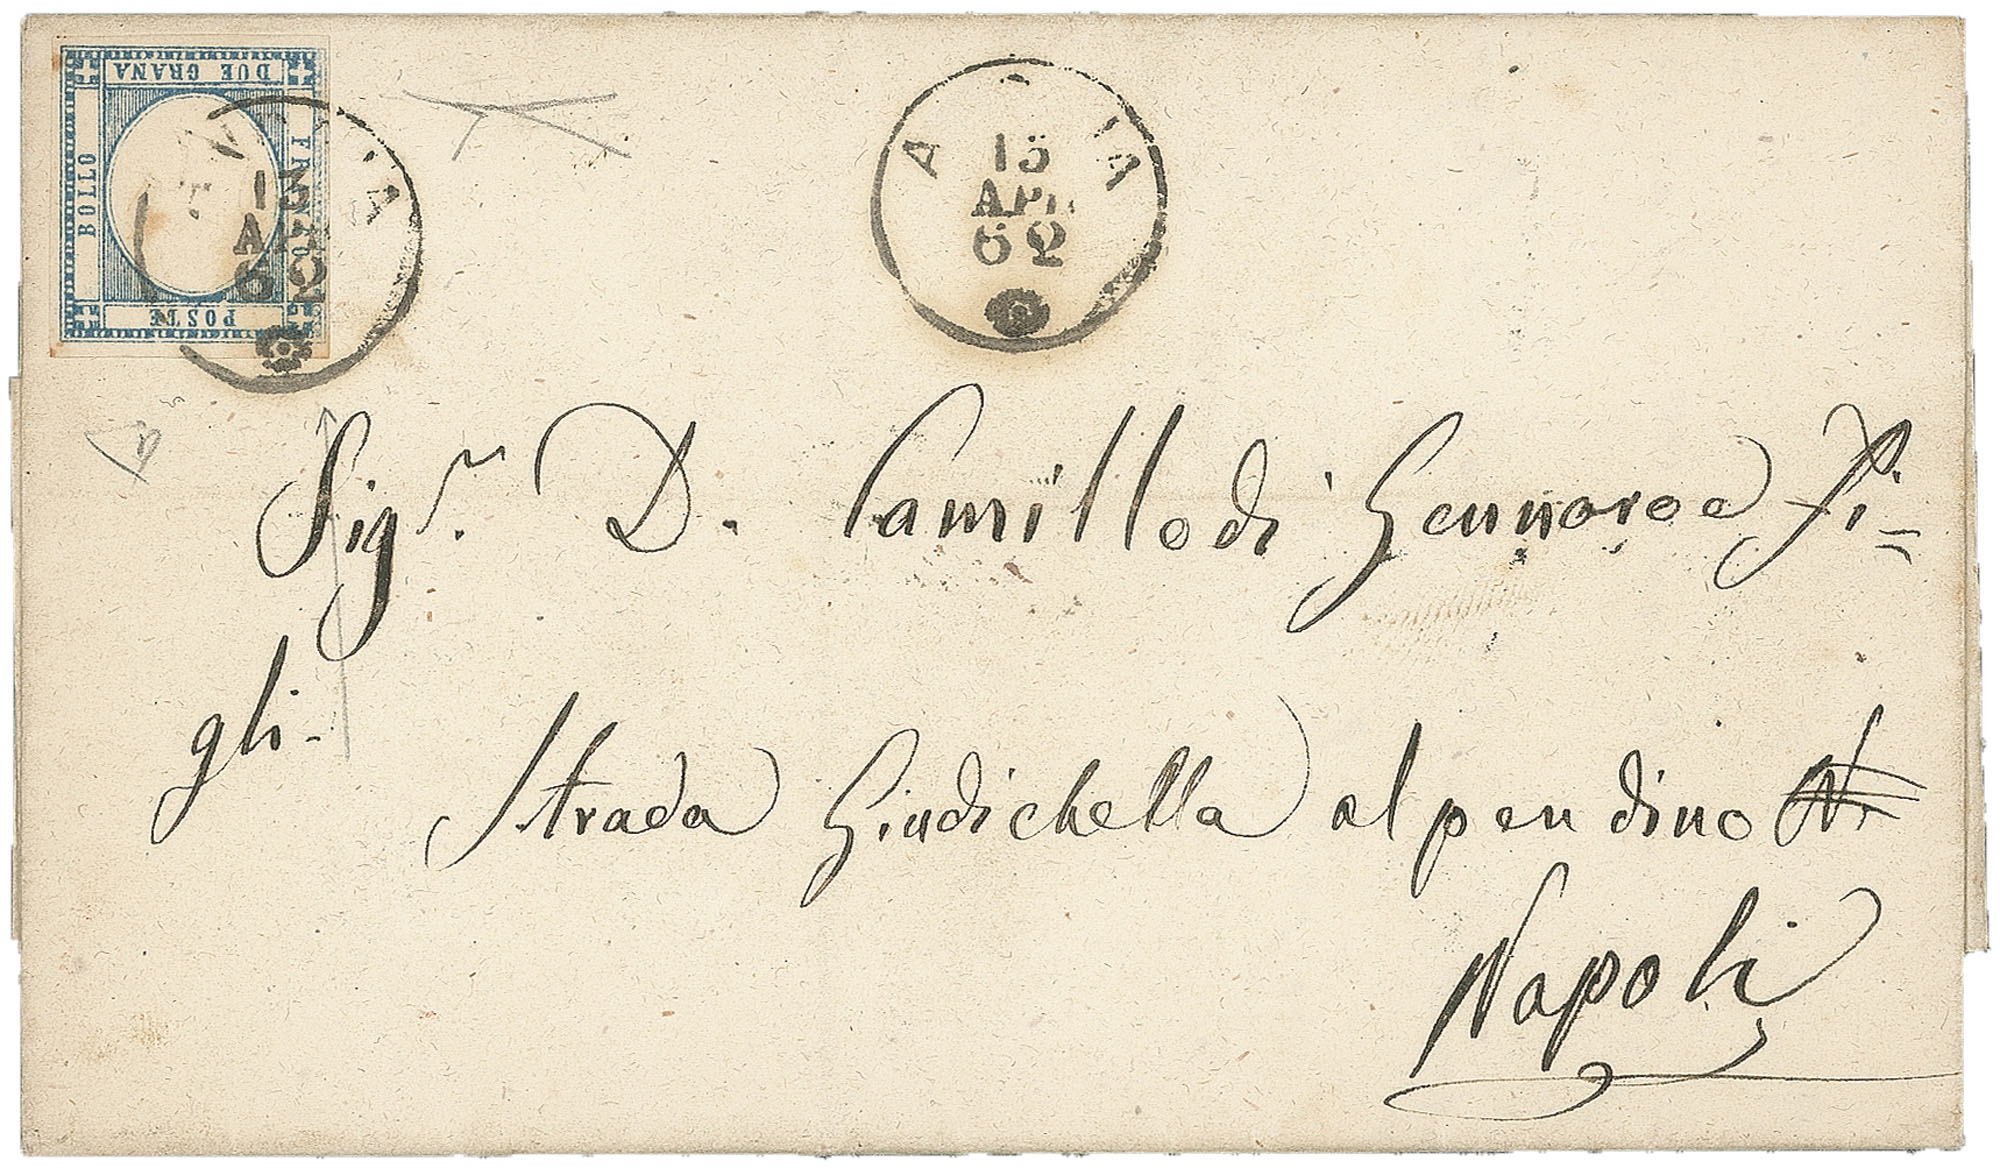 DUE GRANA
BOLLO
POSTE
13
62
15
AP
62
Sigr. D. Camillo di Gennaro e Fi=
gli.
Strada Giudichella al pendino
Napoli